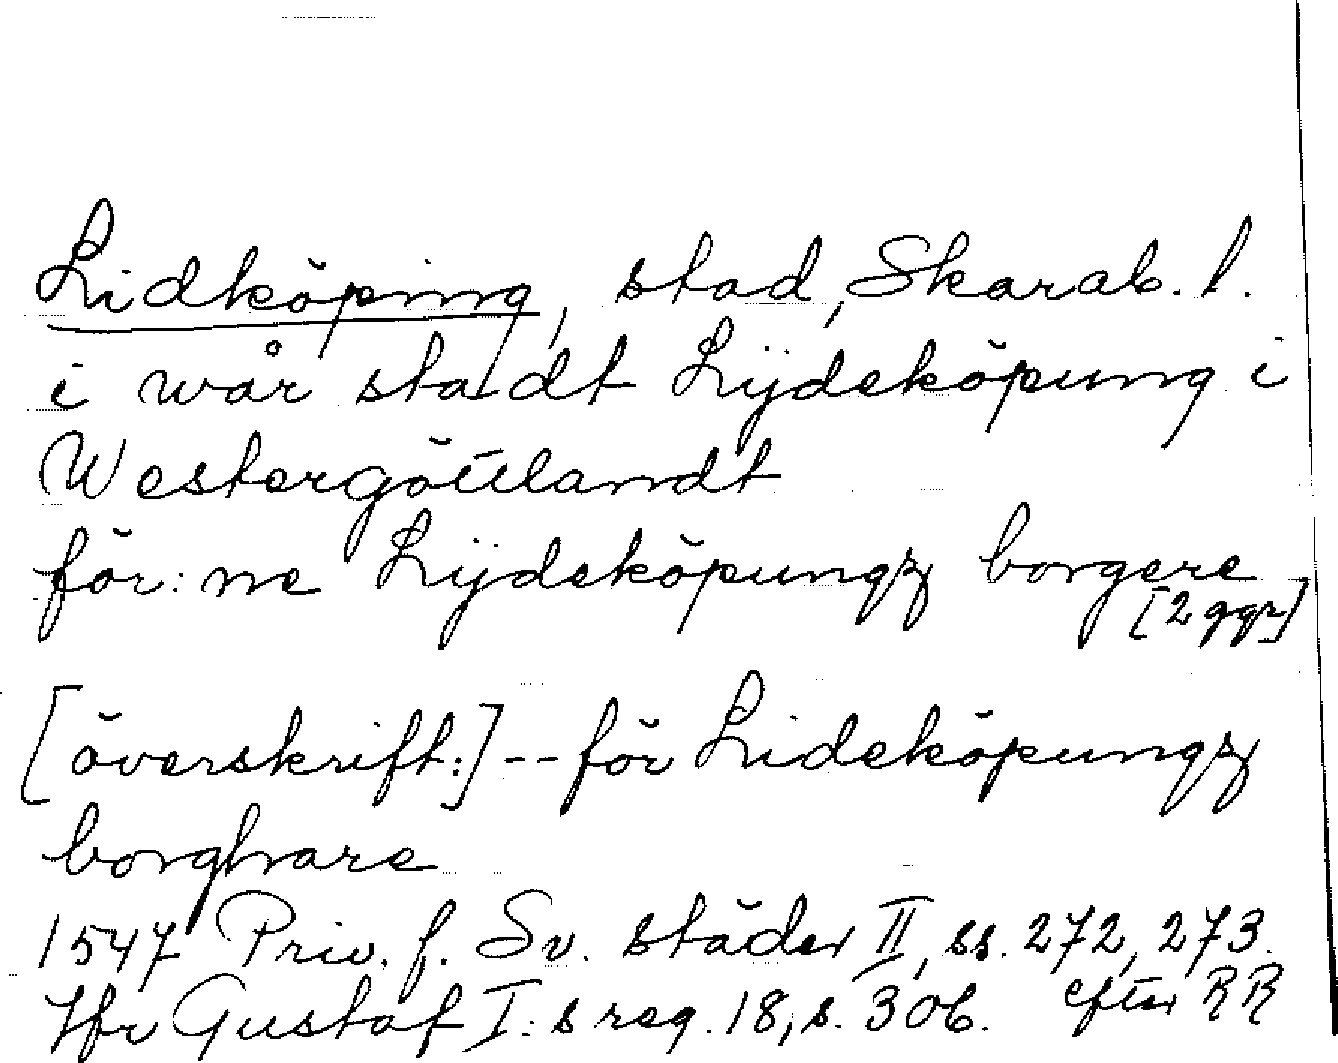 Lidköping, stad, Skarab. l.
i wår stadt Lijdeköpung i
Westergöttlandt
för: ne Lijdeköpungz borgere
[2 ggr]
[överskrift:] -- för Lideköpungz
borghare
1547 Priv. f. Sv. städer II, ss. 272, 273.
Jfr Gustaf I:s reg. 18, s. 306. efter RR